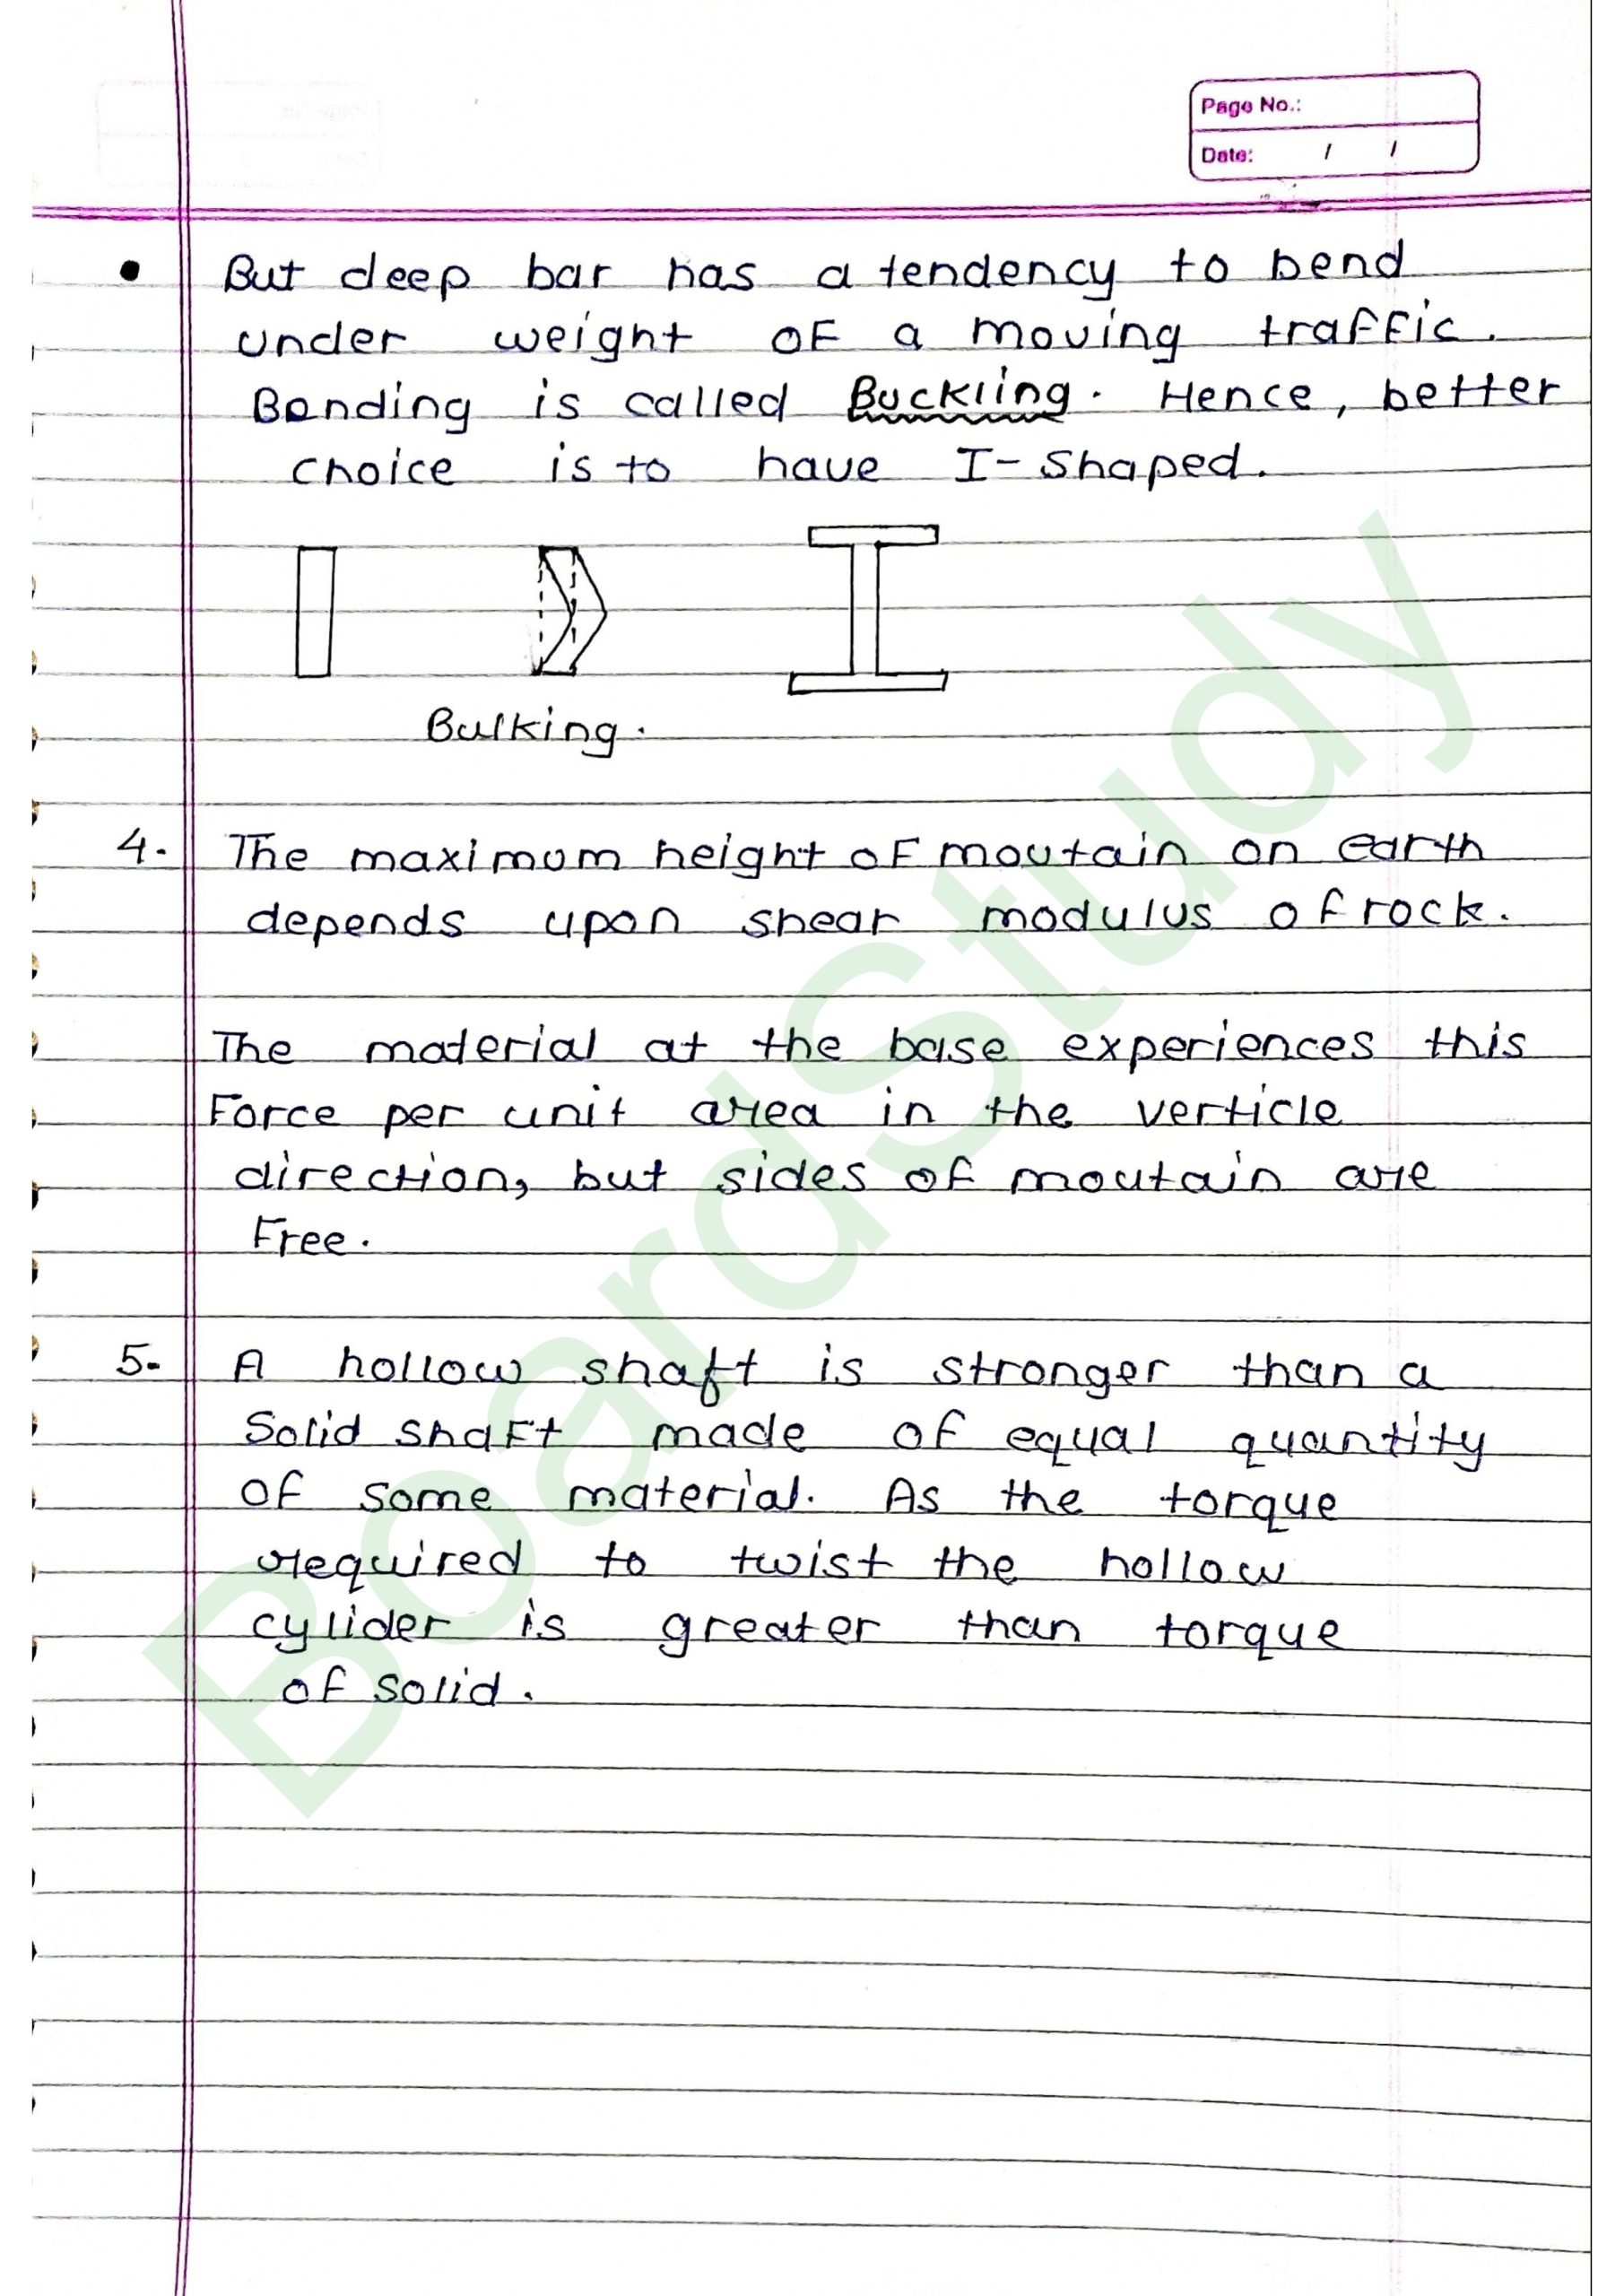 Page No.:
Date: / /
• But deep bar has a tendency to bend
under weight of a moving traffic.
Bending is called Buckling. Hence, better
choice is to have I-shaped.
Bulking.
4. The maximum height of moutain on earth
depends upon shear modulus of rock.
The material at the base experiences this
Force per unit area in the verticle
direction, but sides of moutain are
Free.
5. A hollow shaft is stronger than a
Solid shaft made of equal quantity
of some material. As the torque
required to twist the hollow
cylider is greater than torque
of solid.
BoardStudy